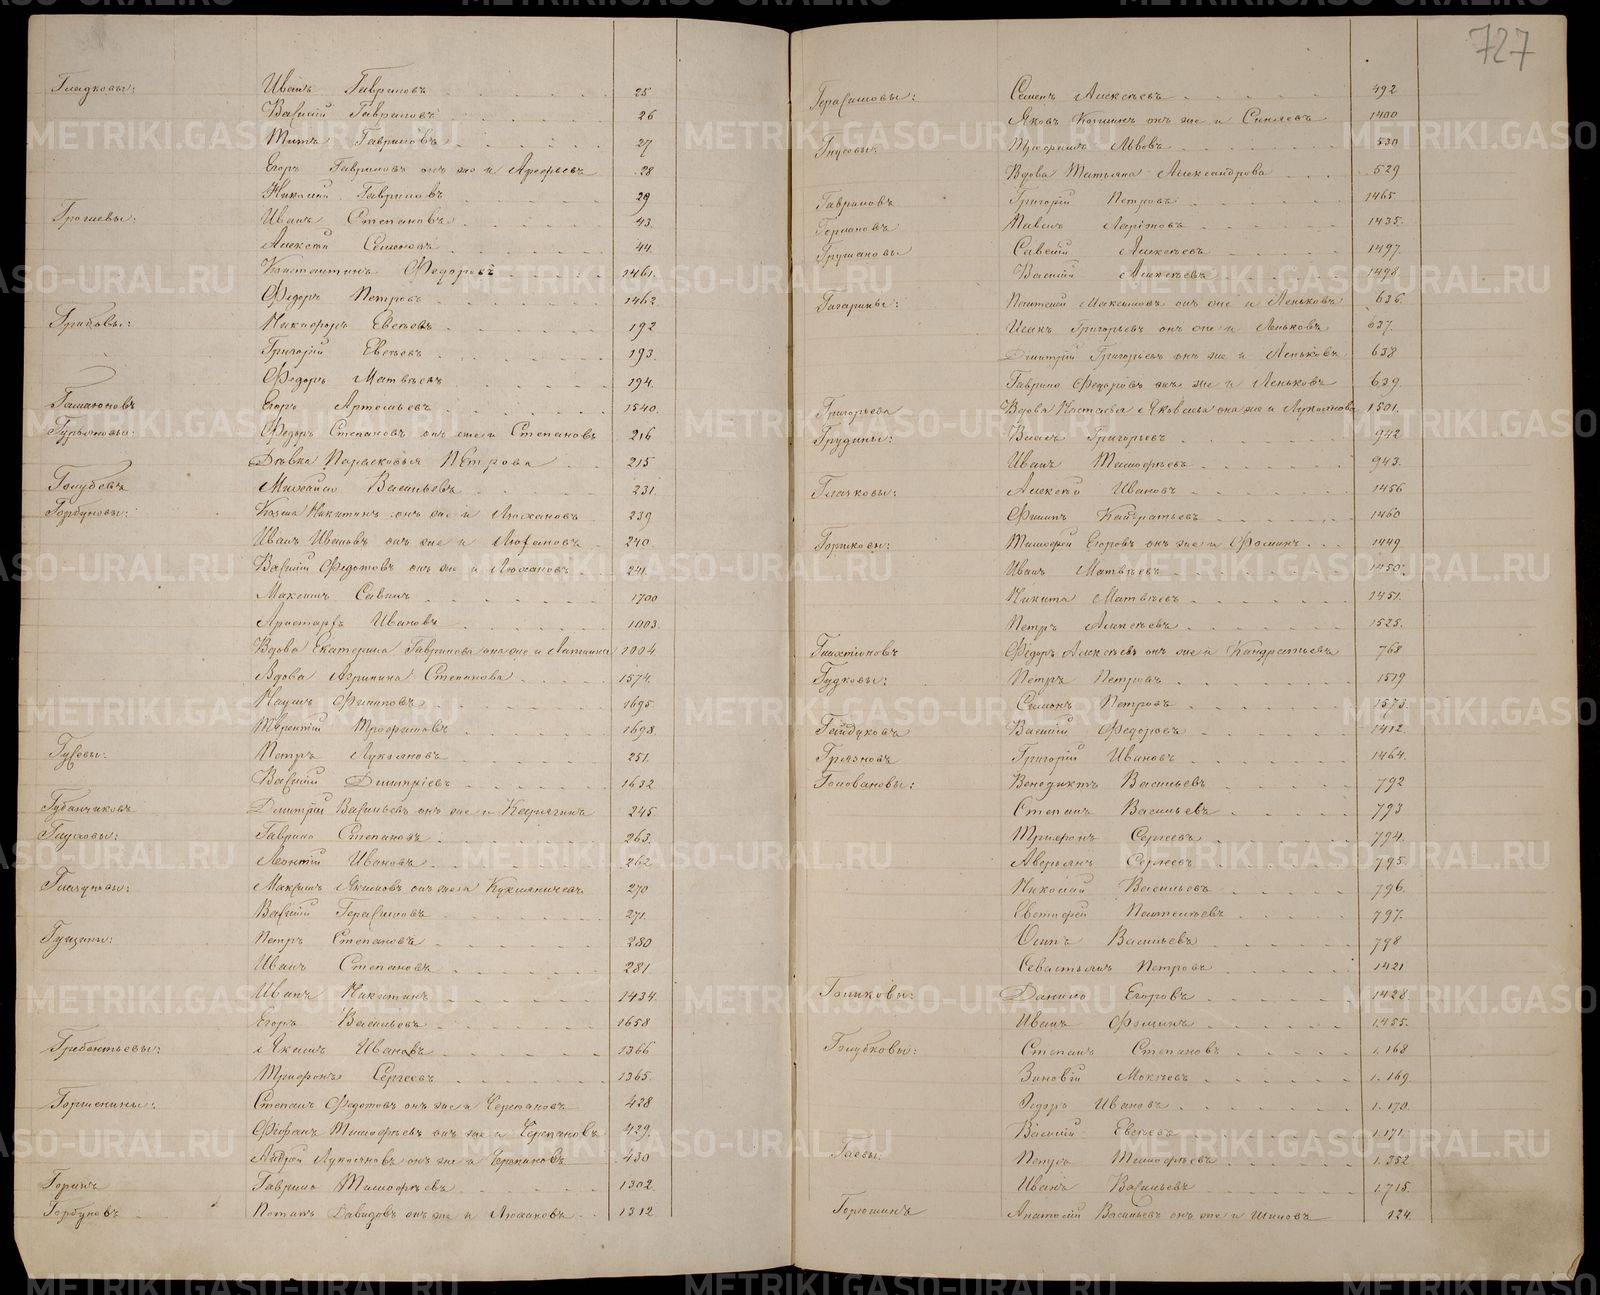 727
Гладковы: Иванъ Гавриловъ 25
Василій Гавриловъ 26
Титъ Гавриловъ 27
Егоръ Гавриловъ онъ же и Арефьевъ 28
Николай Гавриловъ 29
Грошевы: Иванъ Степановъ 43.
Алексѣй Семеновъ 44.
Константинъ Федоровъ 1461.
Федоръ Петровъ 1462
Грибовы: Никифоръ Евсѣевъ 192
Григорій Евсѣевъ 193.
Федоръ Матвѣевъ 194.
Егоръ Артемьевъ 1540.
Гурьяновы: Федоръ Степановъ онъ же и Степановъ 216
Дѣвка Парасковья Петрова 215
Голубевъ Михайло Васильевъ 231
Горбуновы: Козма Никитинъ онъ же и Люхановъ 239
Иванъ Ивановъ онъ же и Люхановъ 240
Василій Федотовъ онъ же и Люхановъ 241.
Максимъ Савинъ 1700
Аристархъ Ивановъ 1003.
Вдова Екатерина Гаврилова она же и 1004
Вдова Агрипина Степанова 1574.
Наумъ Филиповъ 1695.
Терентій Трофимовъ 1698.
Гусевы: Петръ Лукояновъ 251.
Василій Димитріевъ 1632
Губанчиковъ Дмитрій Васильевъ онъ же и Карягинъ 245
Глуховы: Гаврило Степановъ 263.
Леонтій Ивановъ 262
Максимъ Якимовъ онъ же и 270
Василій Герасимовъ 271.
Гущины: Петръ Степановъ 280
Иванъ Степановъ 281
Иванъ Никитинъ 1434.
Егоръ Васильевъ 1658
Гребентьевы: Якимъ Ивановъ 1366
Трифонъ Сергеевъ 1365.
Горшенины: Степанъ Федотовъ онъ же и Черепановъ 428
Феофанъ Тимофѣевъ онъ же и Черепановъ 429.
Андрей Лукояновъ онъ же и Черепановъ 430
Горинъ Гаврило Тимофѣевъ 1302.
Горбуновъ Потапъ Давидовъ онъ же и Люхановъ 1312
Герасимовы: Семенъ Алексѣевъ 492
Яковъ онъ же и Синяевъ 1400
Гнусовы: Львовъ 530
Вдова Татьяна Александрова 529
Гавриловъ Григорій Петровъ 1465.
Германовъ Павелъ Ларіоновъ 1435.
Грушановы Савелій Алексѣевъ 1497.
Василій Алексѣевъ 1498.
Гагарины: Пантелей Максимовъ онъ же и Леньковъ 636.
Исакъ Григорьевъ онъ же и Леньковъ 637.
Дмитрій Григорьевъ онъ же и Леньковъ 638
Гаврило Федоровъ онъ же и Леньковъ 639.
Григорьева Вдова Настасья Яковлева она же и Лукоянова 1501.
Грудины: Григорьевъ 942
Иванъ Тимофѣевъ 943.
Глачковы: Алексѣй Ивановъ 1456
Филипъ Кандратьевъ 1460
Горшковы: Тимофей Егоровъ онъ же и Фоминъ 1449.
Иванъ Матвѣевъ 1450.
Никита Матвѣевъ 1451.
Петръ Алексѣевъ 1525.
Галахтіоновъ Федоръ Алексѣевъ онъ же и Кандратьевъ 768
Гудковы: Петръ Петровъ 1519
Семенъ Петровъ 1573.
Гайдуковъ Василій Федоровъ 1412.
Грязновъ Григорій Ивановъ 1464.
Головановы: Венедиктъ Васильевъ 792
Степанъ Васильевъ 793
Трифонъ Сергеевъ 794.
Аверьянъ Сергеевъ 795.
Николай Васильевъ 796.
Евстифей Пантелѣевъ 797.
Осипъ Васильевъ 798
Севастьянъ Петровъ 1421
Голиковы: Данило Егоровъ 1428.
Иванъ Фоминъ 1455.
Голубковы: Степанъ Степановъ 1.168
Зиновій Мокѣевъ 1.169.
Федоръ Ивановъ 1.170.
Василій Евсѣевъ 1.171.
Гаевы: Петръ Тимофѣевъ 1.352
Иванъ Васильевъ 1.715.
Горюшинъ Анатолій Васильевъ онъ же и Шиповъ 124.